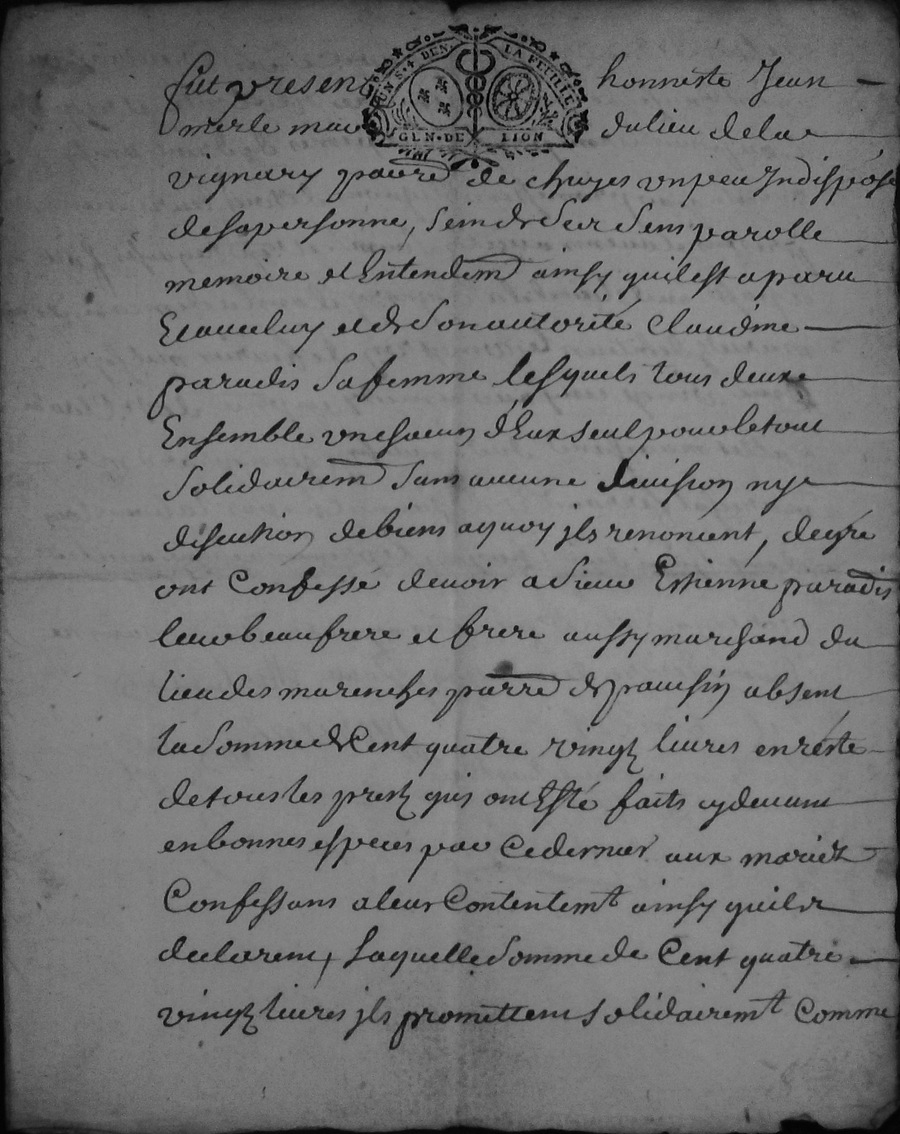 UN S. 4 DEN. LA FEUILLE
GEN. DE LION
fut present honneste Jean
merle mar du lieu de la
vignary parre de chuyes un peu Indisposé
de sa personne, sein de ses sens parolle
memoire et Entendemt ainsy quil est aparu
Et avec luy et de son autorité Claudine
paradis sa femme lesquels tous deux
Ensemble un chacun d'Eux seul pour le tout
solidairemt sans aucune division ny
discution de biens a quoy jls renoncent, de gre
ont Confessé devoir a sieur Estienne paradis
leur beau frere et frere aussy marchand du
lieu des marenches parre de paursin absent
la somme de Cent quatre vingtz livres en reste
de tous les prestz quis ont Esté faits cy devant
en bonnes especes par Ce dernier aux mariez
Confessans a leur Contentemt ainsy quil
declarent, Laquelle somme de Cent quatre
vingtz livres jls promettent solidairemt Comme